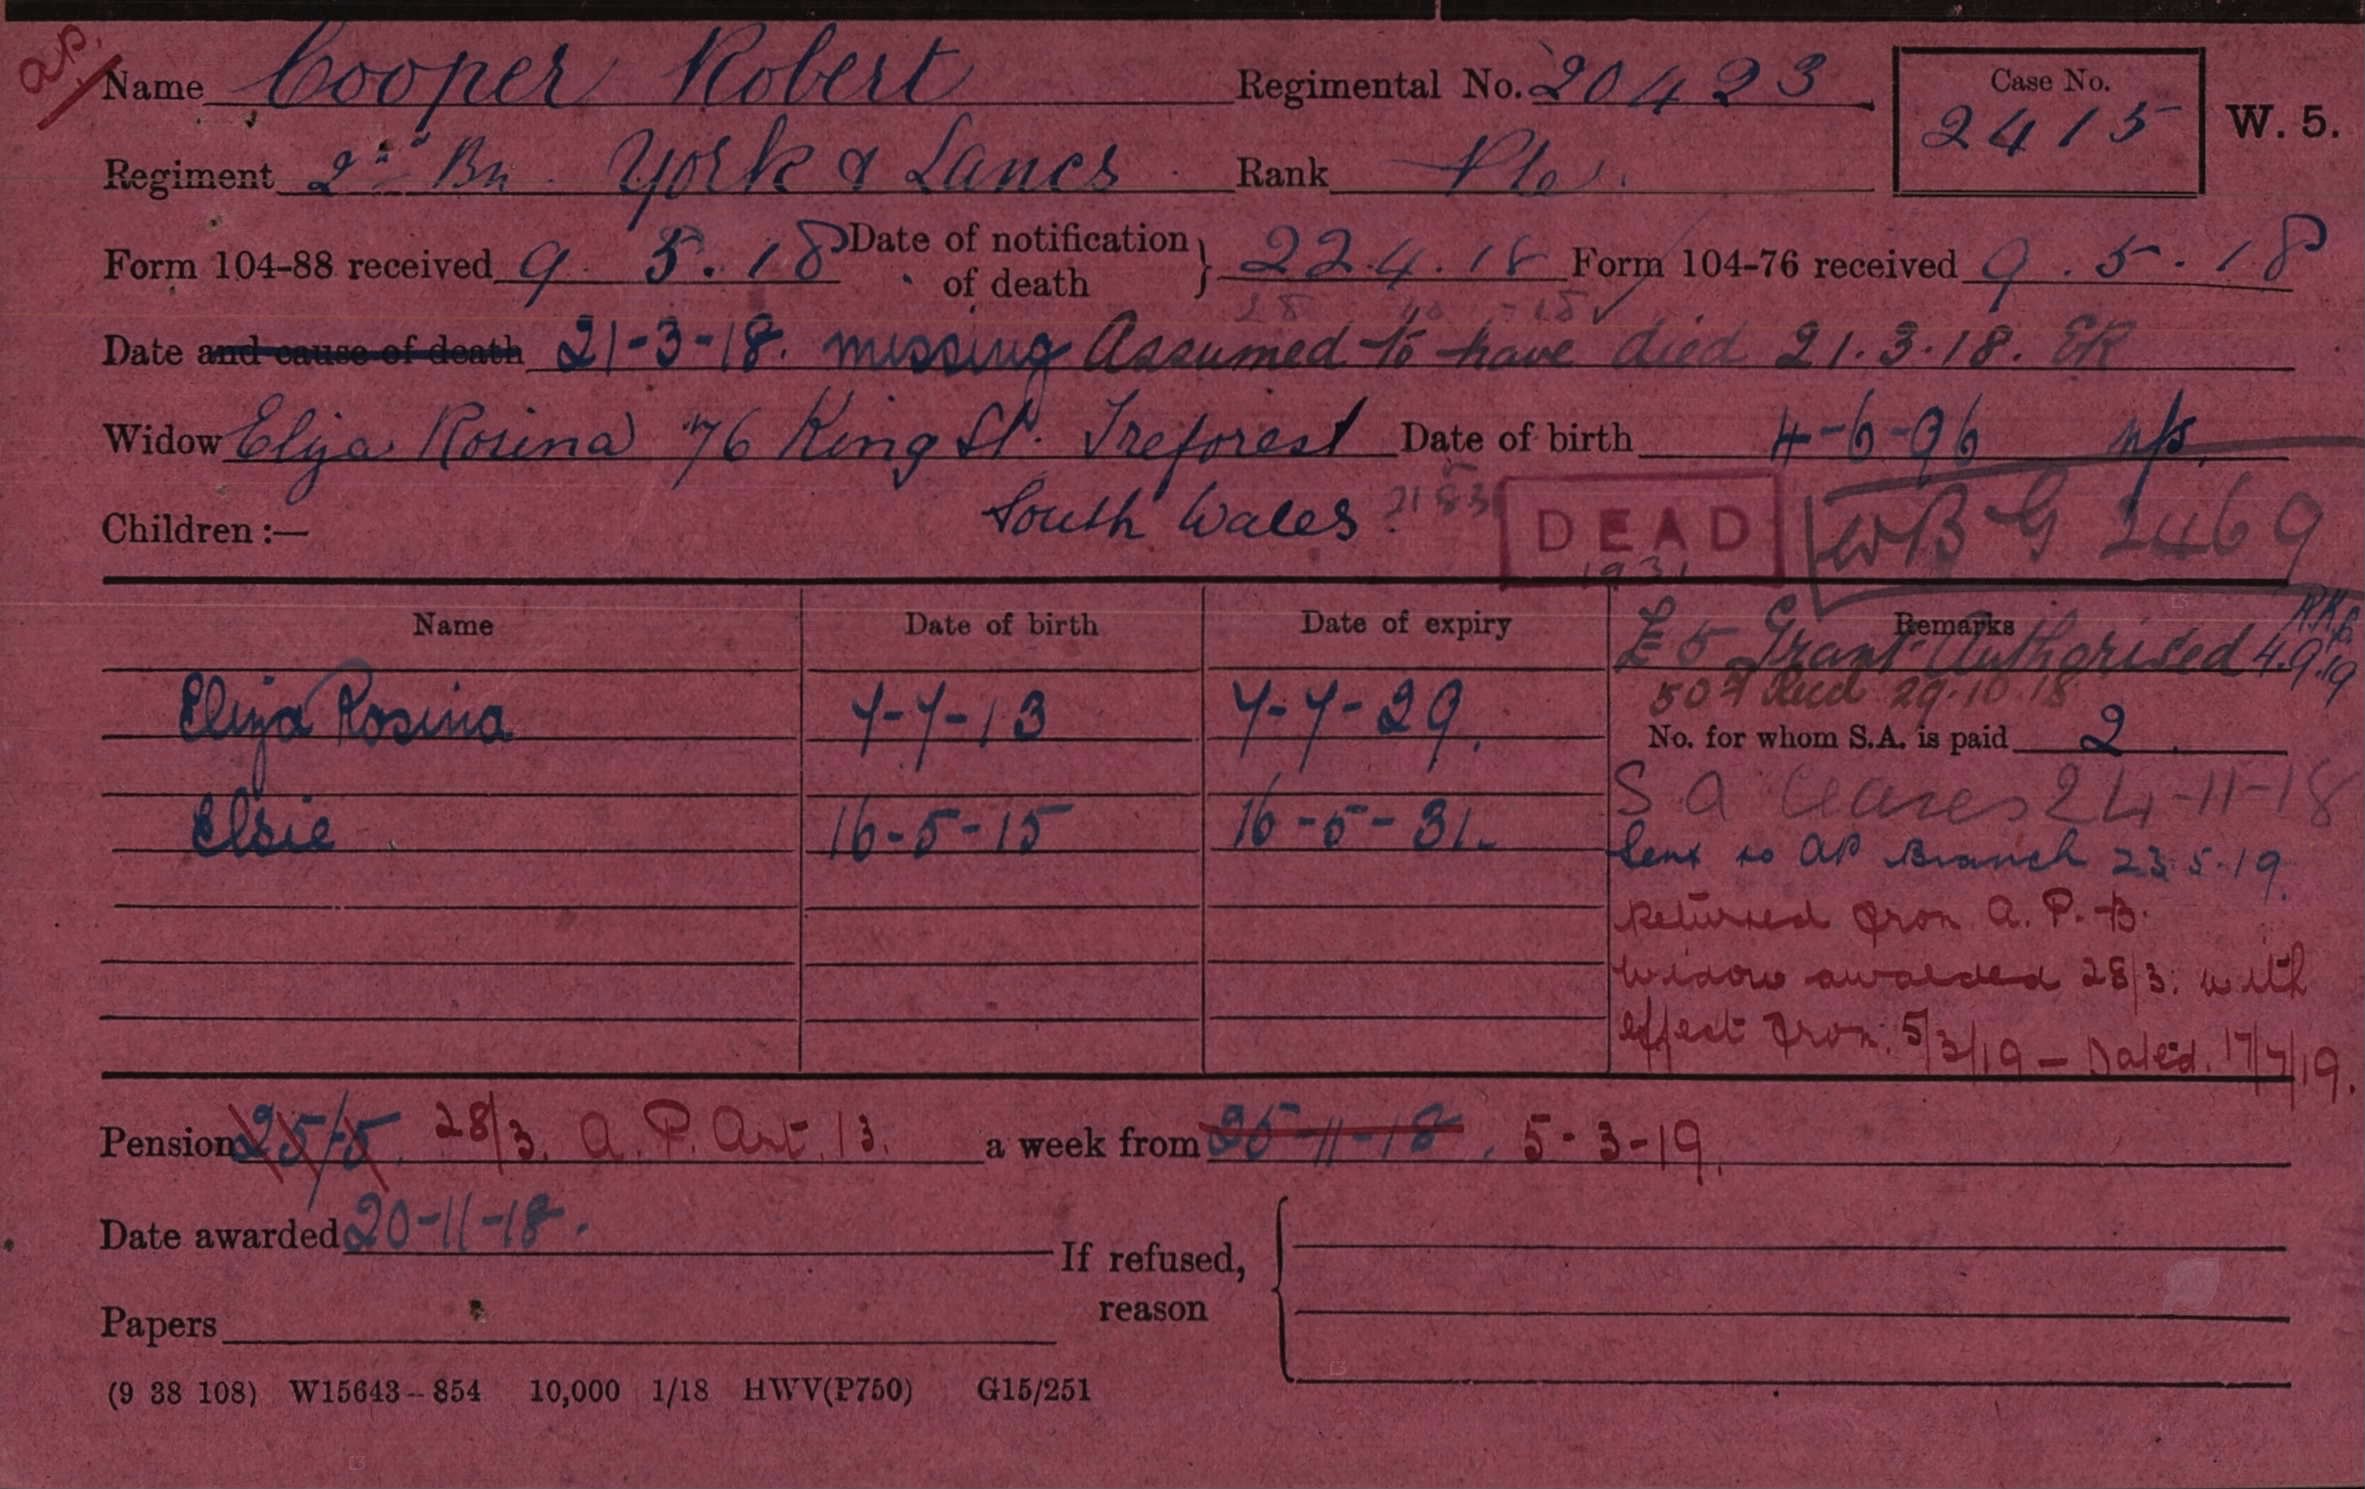 a.p.
Name Cooper Robert Regimental No. 20423 Case No. 2415 W. 5.
Regiment 2nd Bn. York & Lancs Rank Pte.
Form 104-88 received 9. 5. 18 Date of notification of death } 22.4.18 Form 104-76 received 9. 5. 18
Date and cause of death 21-3-18. missing Assumed to have died 21.3.18. ER
Widow Eliza Rosina 76 King St. Treforest Date of birth 4-6-96 n/s.
Children :— South Wales. DEAD WBG 2469
1931
Name Date of birth Date of expiry Remarks
£5 Grant Authorised 4.9.19
Eliza Rosina 7-7-13 7-7-29.
Recd 29.10.18
No. for whom S.A. is paid 2.
S A Ceases 24-11-18
Elsie 16-5-15 16-5-31.
Sent to AP Branch 23.5.19.
Returned from A. P. B.
Widow awarded 28/3. with
effect from. 5/3/19 — Dated. 17/7/19.
Pension 25/5. 28/3. A. P. Art. 13. a week from 25-11-18. 5-3-19.
Date awarded 20-11-18.
If refused,
reason
Papers
(9 38 108) W15643-854 10,000 1/18 HWV(P750) G15/251